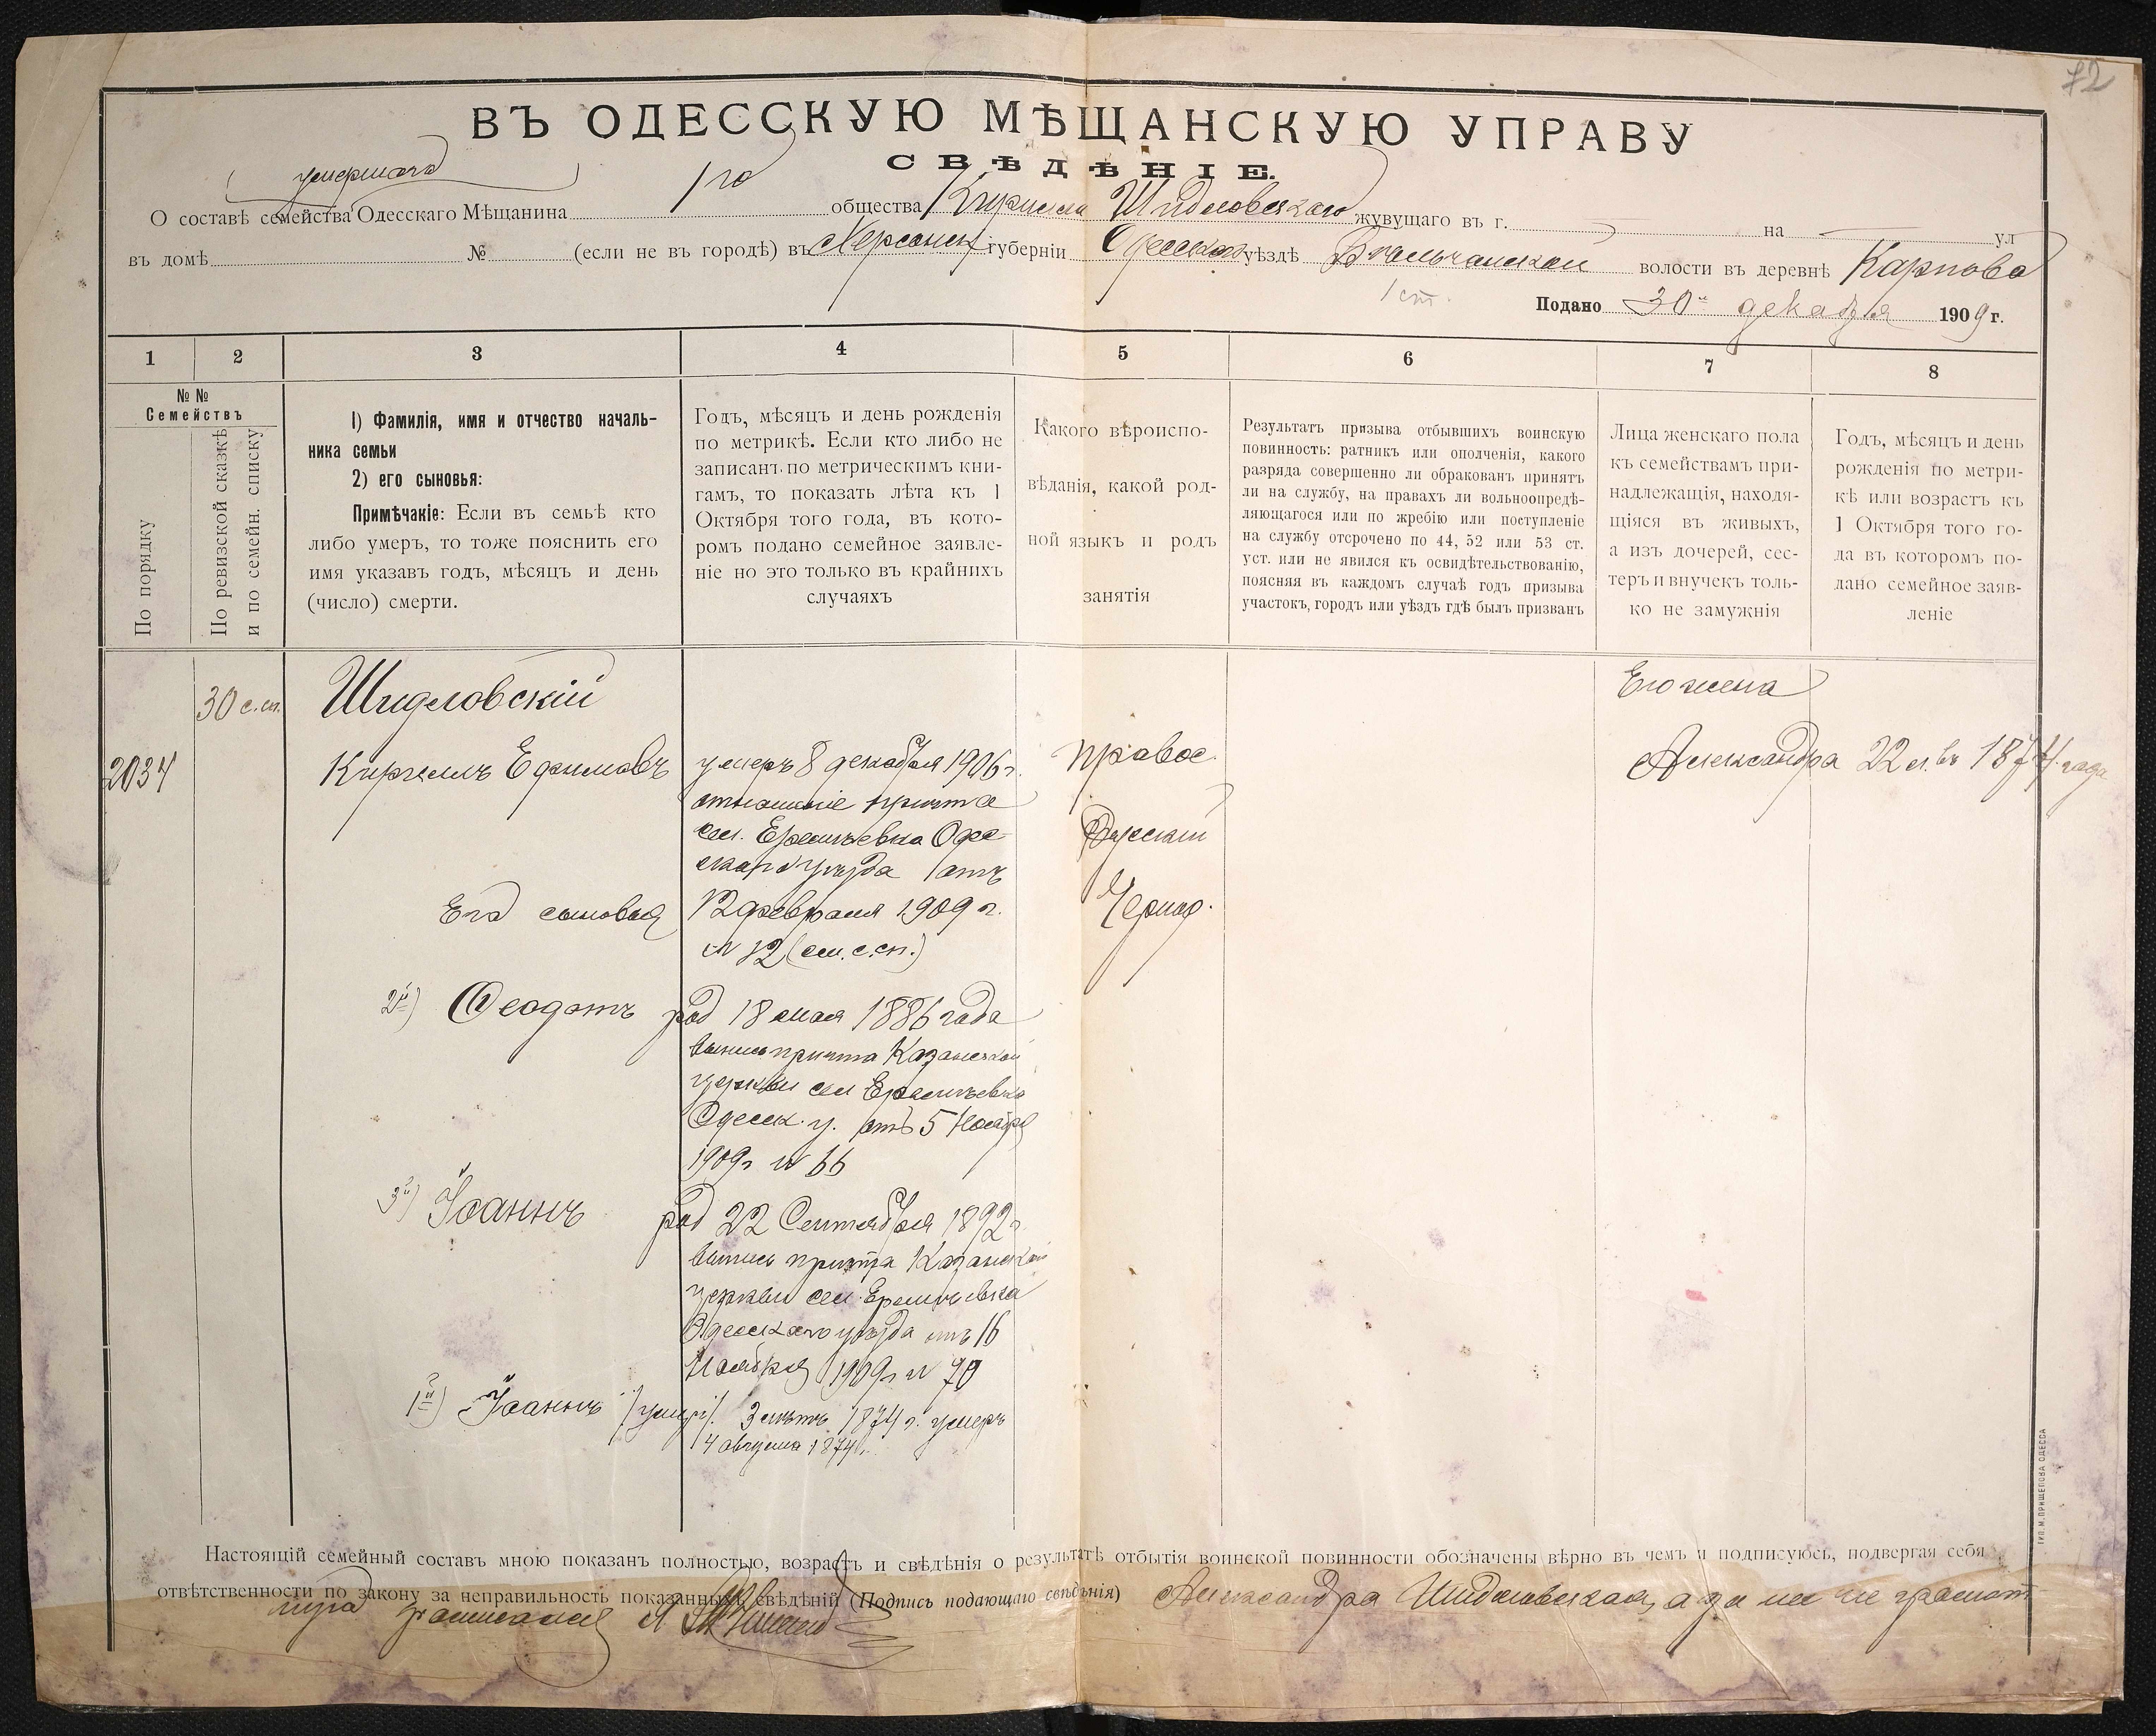 72
ВЪ ОДЕССКУЮ МѢЩАНСКУЮ УПРАВУ
СВѢДѢНІЕ.
умершаго
О составѣ семейства Одесскаго Мѣщанина 1го общества Кирилла Шидловскаго жувущаго въ г. на ул
въ домѣ № (если не въ городѣ) въ Херсонск губерніи Одесскаго уѣздѣ волости въ деревнѣ Карпова
1 ст.
Подано 30го декабря 1909 г.
1 2 3 4 5 6 7 8
№ №
Семействъ
По порядку
По ревизской сказкѣ
и по семейн. списку
1) Фамилія, имя и отчество началь-
ника семьи
2) его сыновья:
Примѣчакіе: Если въ семьѣ кто
либо умеръ, то тоже пояснить его
имя указавъ годъ, мѣсяцъ и день
(число) смерти.
Годъ, мѣсяцъ и день рожденія
по метрикѣ. Если кто либо не
записанъ по метрическимъ кни-
гамъ, то показать лѣта къ 1
Октября того года, въ кото-
ромъ подано семейное заявле-
ніе но это только въ крайнихъ
случаяхъ
Какого вѣроиспо-
вѣданія, какой род-
ной языкъ и родъ
занятія
Результатъ призыва отбывшихъ воинскую
повинность: ратникъ или ополченія, какого
разряда совершенно ли обракованъ принятъ
ли на службу, на правахъ ли вольноопредѣ-
ляющагося или по жребію или поступленіе
на службу отсрочено по 44, 52 или 53 ст.
уст. или не явился къ освидѣтельствованію,
поясняя въ каждомъ случаѣ годъ призыва
участокъ, городъ или уѣздъ гдѣ былъ призванъ
Лица женскаго пола
къ семействамъ при-
надлежащія, находя-
щіяся въ живыхъ,
а изъ дочерей, сес-
теръ и внучекъ толь-
ко не замужнія
Годъ, мѣсяцъ и день
рожденія по метри-
кѣ или возрастъ къ
1 Октября того го-
да въ которомъ по-
дано семейное заяв-
леніе
30 с.сп. Шидловскій
Его жена
2034 Кириллъ Ефимовъ
умеръ 8 декабря 1906 г.
отношеніе причта
сел. Еремѣевка Оде-
скаго уѣзда отъ
12 февраля 1909 г.
№ 32 (см. с.сп.)
правос.
Русскій
Чернор.
Александра 22 л. въ 1874 года
Его сыновья
2й) Феодотъ
род 18 мая 1886 года
выпись причта Казанской
церкви сел Еремѣевка
Одесск. у. отъ 5 Ноября
1909 г № 66
3й) Іоаннъ
род 22 Сентября 1892 г
выпись причта Казанской
церкви сел. Еремѣевка
Одесскаго уѣзда отъ 16
Ноября 1909 г № 70
1й) Іоаннъ /умеръ/. 3 лѣтъ 1874 г. умеръ
4 августа 1874 г.
Настоящій семейный составъ мною показанъ полностью, возрастъ и свѣдѣнія о результатѣ отбытія воинской повинности обозначены вѣрно въ чемъ и подписуюсь, подвергая себя
отвѣтственности по закону за неправильность показанныхъ свѣдѣній (Подпись подающаго свѣдѣнія) Александра Шидловская, а за не грамот
ную росписался
ТИП. М. ПРИЩЕПОВА ОДЕССА